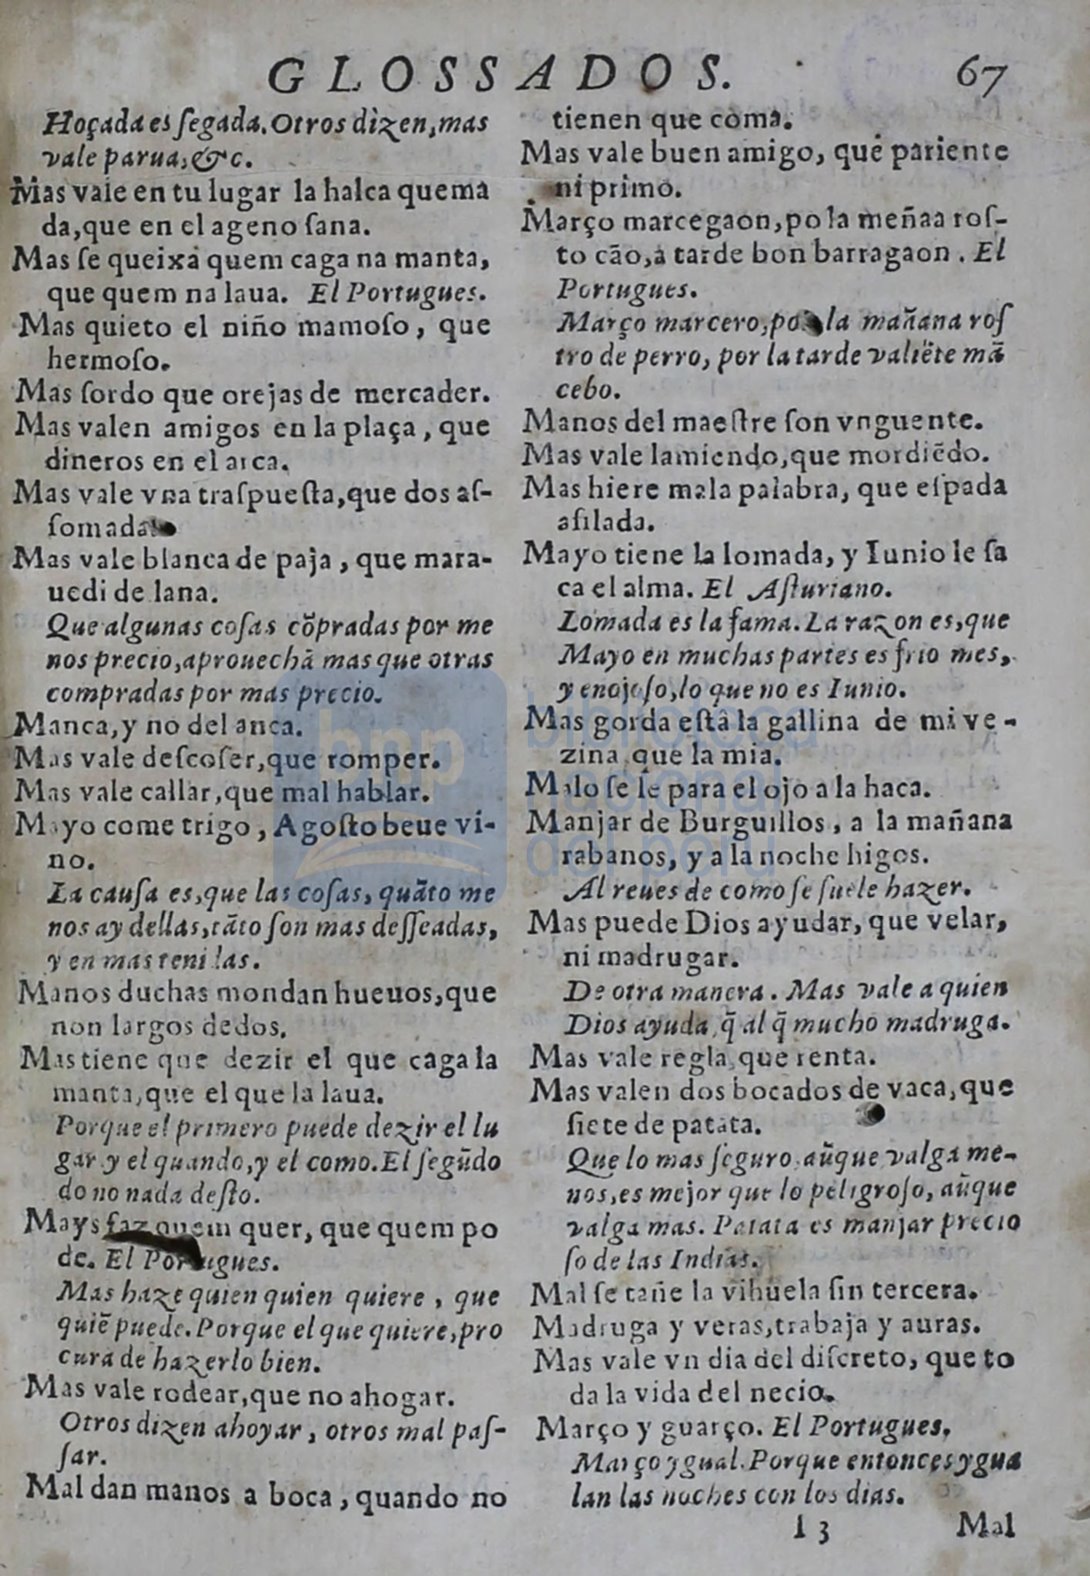 GLOSSADOS. 67
Hoçada es ſegada. Otros dizen, mas
vale parua, &c.
Mas vale en tu lugar la halca quema
da, que en el ageno ſana.
Mas ſe queixa quem caga na manta,
que quem na laua. El Portugues.
Mas quieto el niño mamoſo, que
hermoſo.
Mas ſordo que orejas de mercader.
Mas valen amigos en la plaça, que
dineros en el arca.
Mas vale vna traſpueſta, que dos aſ-
ſomada
Mas vale blanca de paja, que mara-
uedi de lana.
Que algunas coſas cõpradas por me
nos precio, aprouechã mas que otras
compradas por mas precio.
Manca, y no del anca.
Mas vale deſcoſer, que romper.
Mas vale callar, que mal hablar.
Mayo come trigo, Agoſto beue vi-
no.
La cauſa es, que las coſas, quãto me
nos ay dellas, tãto ſon mas deſſeadas,
y en mas tenidas.
Manos duchas mondan hueuos, que
non largos dedos.
Mas tiene que dezir el que caga la
manta, que el que la laua.
Porque el primero puede dezir el lu
gar y el quando, y el como. El ſegũdo
do no nada deſto.
Mays faz quem quer, que quem po
de. El Portugues.
Mas haze quien quien quiere, que
quiẽ puede. Porque el que quiere, pro
cura de hazerlo bien.
Mas vale rodear, que no ahogar.
Otros dizen ahoyar, otros mal paſ-
ſar.
Mal dan manos a boca, quando no
tienen que coma.
Mas vale buen amigo, que pariente
ni primo.
Março marcegaon, pola meñaa roſ-
to cão, a tarde bon barragaon. El
Portugues.
Março marcero, por la mañana roſ
tro de perro, por la tarde valiẽte mã
cebo.
Manos del maeſtre ſon vnguente.
Mas vale lamiendo, que mordiẽdo.
Mas hiere mala palabra, que eſpada
aſilada.
Mayo tiene la lomada, y Iunio le ſa
ca el alma. El Aſturiano.
Lomada es la fama. La razon es, que
Mayo en muchas partes es frio mes,
y enojoſo, lo que no es Iunio.
Mas gorda eſtà la gallina de mi ve-
zina que la mia.
Malo ſe le para el ojo a la haca.
Manjar de Burguillos, a la mañana
rabanos, y a la noche higos.
Al reues de como ſe ſuele hazer.
Mas puede Dios ayudar, que velar,
ni madrugar.
De otra manera. Mas vale a quien
Dios ayuda, q̃ al q̃ mucho madruga.
Mas vale regla, que renta.
Mas valen dos bocados de vaca, que
ſiete de patata.
Que lo mas ſeguro, aũque valga me-
nos, es mejor que lo peligroſo, aũque
valga mas. Patata es manjar precio
ſo de las Indias.
Mal ſe tañe la vihuela ſin tercera.
Madruga y veras, trabaja y auras.
Mas vale vn dia del diſcreto, que to
da la vida del necio.
Março y guarço. El Portugues.
Março ygual. Porque entonces ygua
lan las noches con los dias.
I 3 Mal
bnp biblioteca
nacional
del perú